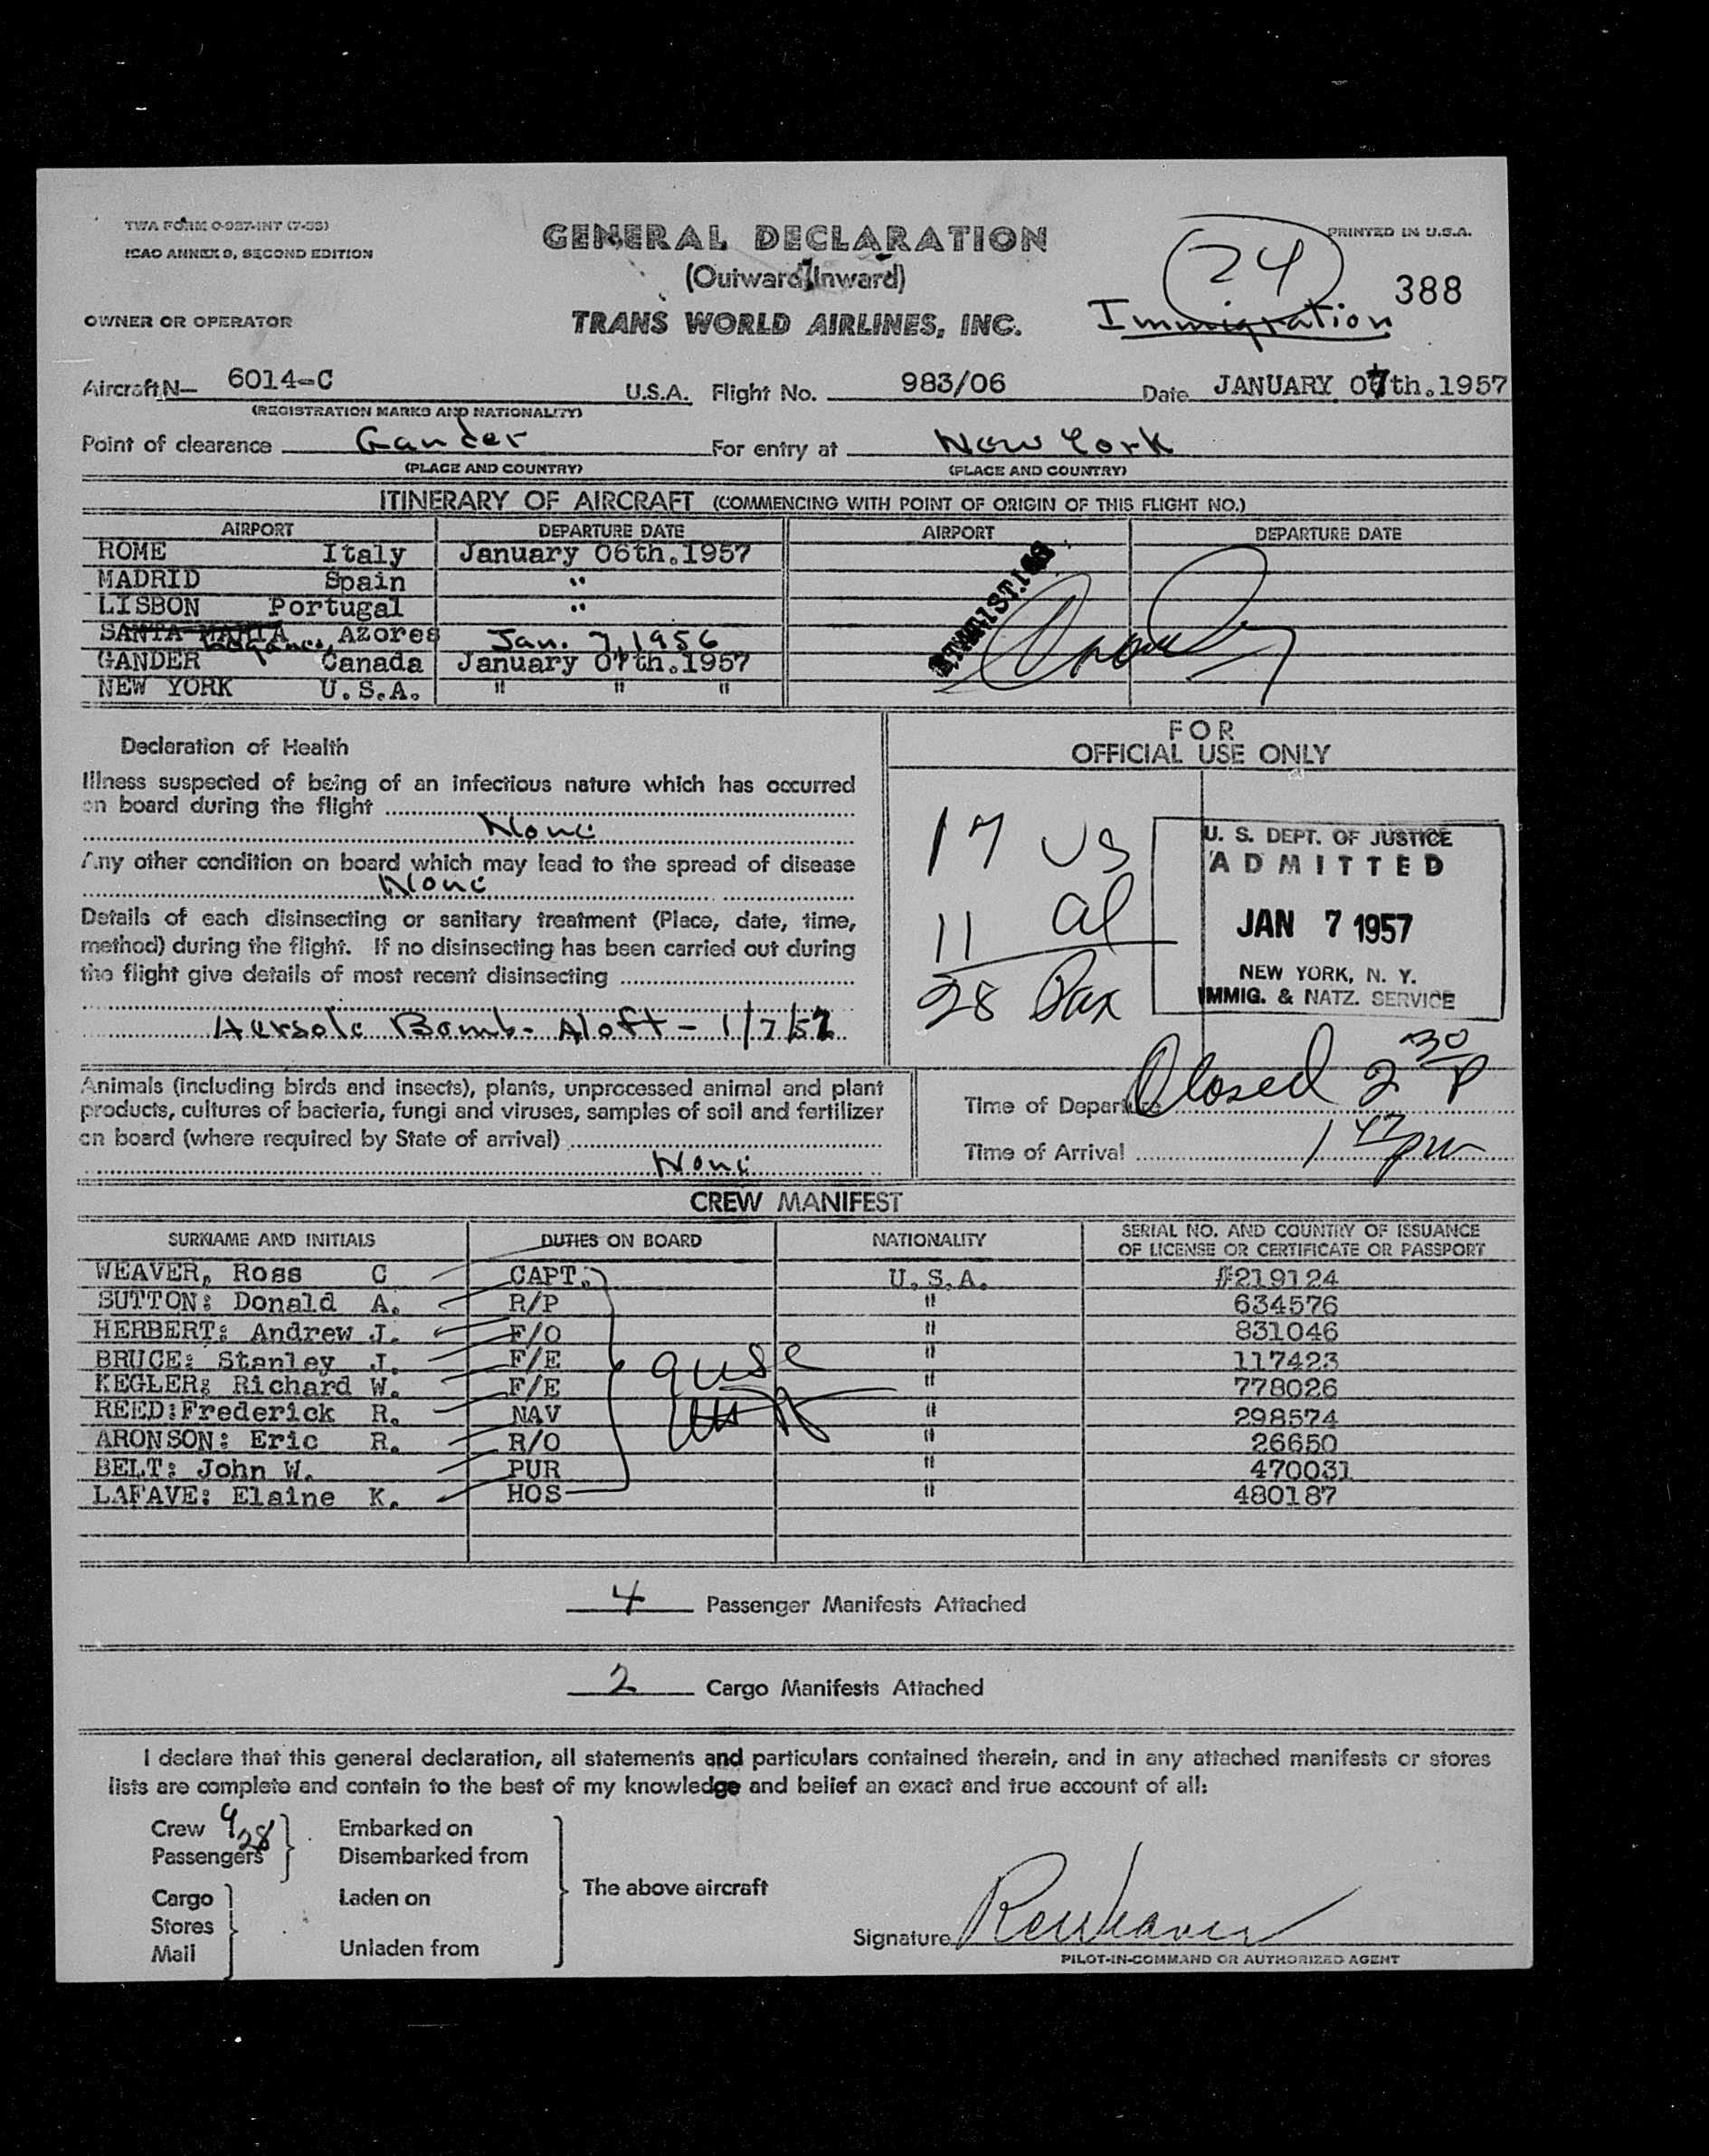 TWA FORM O-927-INT (7-53)
ICAO ANNEX 9, SECOND EDITION
PRINTED IN U.S.A.
GENERAL DECLARATION
(Outward/Inward)
24
388
Immigration
OWNER OR OPERATOR
TRANS WORLD AIRLINES, INC.
Aircraft N— 6014-C U.S.A. Flight No. 983/06 Date JANUARY 07th.1957
(REGISTRATION MARKS AND NATIONALITY)
Point of clearance Gander For entry at New York
(PLACE AND COUNTRY) (PLACE AND COUNTRY)
ITINERARY OF AIRCRAFT (COMMENCING WITH POINT OF ORIGIN OF THIS FLIGHT NO.)
AIRPORT DEPARTURE DATE AIRPORT DEPARTURE DATE
ROME Italy January 06th.1957
MADRID Spain "
LISBON Portugal "
SANTA MARIA Azores Jan. 7, 1956
GANDER Canada January 07th.1957
NEW YORK U.S.A. " " "
Declaration of Health
Illness suspected of being of an infectious nature which has occurred
on board during the flight
None
Any other condition on board which may lead to the spread of disease
None
Details of each disinsecting or sanitary treatment (Place, date, time,
method) during the flight. If no disinsecting has been carried out during
the flight give details of most recent disinsecting
Aersole Bomb- Aloft - 1/7/57
FOR
OFFICIAL USE ONLY
17 US
11 al
28 Pax
U. S. DEPT. OF JUSTICE
ADMITTED
JAN 7 1957
NEW YORK, N. Y.
IMMIG. & NATZ. SERVICE
Animals (including birds and insects), plants, unprocessed animal and plant
products, cultures of bacteria, fungi and viruses, samples of soil and fertilizer
on board (where required by State of arrival)
None
Closed 2 30 P
Time of Departure
Time of Arrival 1 47 pm
CREW MANIFEST
SURNAME AND INITIALS DUTIES ON BOARD NATIONALITY SERIAL NO. AND COUNTRY OF ISSUANCE
OF LICENSE OR CERTIFICATE OR PASSPORT
WEAVER, Ross C CAPT. U.S.A. #219124
SUTTON: Donald A. R/P " 634576
HERBERT: Andrew J. F/O " 831046
BRUCE: Stanley J. F/E " 117423
KEGLER: Richard W. F/E " 778026
REED:Frederick R. NAV " 298574
ARONSON: Eric R. R/O " 26650
BELT: John W. PUR " 470031
LAFAVE: Elaine K. HOS " 480187
9 USC
4 Passenger Manifests Attached
2 Cargo Manifests Attached
I declare that this general declaration, all statements and particulars contained therein, and in any attached manifests or stores
lists are complete and contain to the best of my knowledge and belief an exact and true account of all:
Crew 9
Passengers 28
Embarked on
Disembarked from
Cargo
Stores
Mail
Laden on
Unladen from
The above aircraft
Signature RCWeaver
PILOT-IN-COMMAND OR AUTHORIZED AGENT